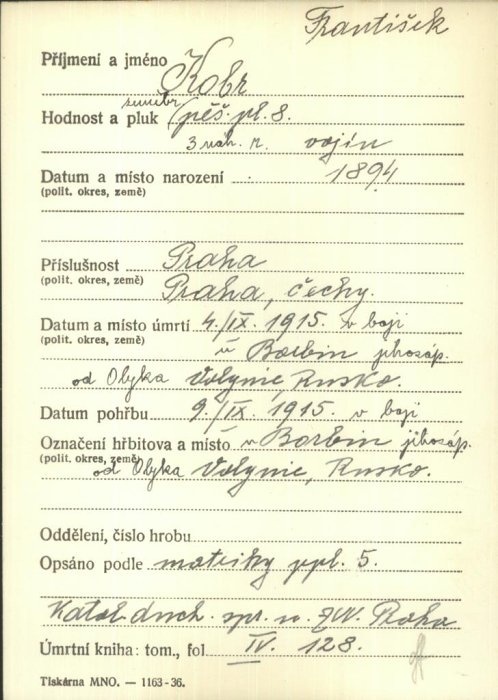 František
Příjmení a jméno Kobr
Hodnost a pluk pěš. pl. 8.
3 náh. r. vojín
Datum a místo narození 1894
(polit. okres, země)
Příslušnost Praha
(polit. okres, země) Praha, čechy.
Datum a místo úmrtí 4/IX. 1915. v boji
(polit. okres, země) u Borbin jihozáp.
od Olyka Volynie, Rusko.
Datum pohřbu 9./IX. 1915. v boji
Označení hřbitova a místo u Borbin jihozáp.
(polit. okres, země) od Olyka Volynie, Rusko.
Oddělení, číslo hrobu
Opsáno podle matriky ppl. 5.
Katol. duch. spr. n. ZVV. Praha
Úmrtní kniha: tom., fol. IV. 128.
Tiskárna MNO. — 1163-36.